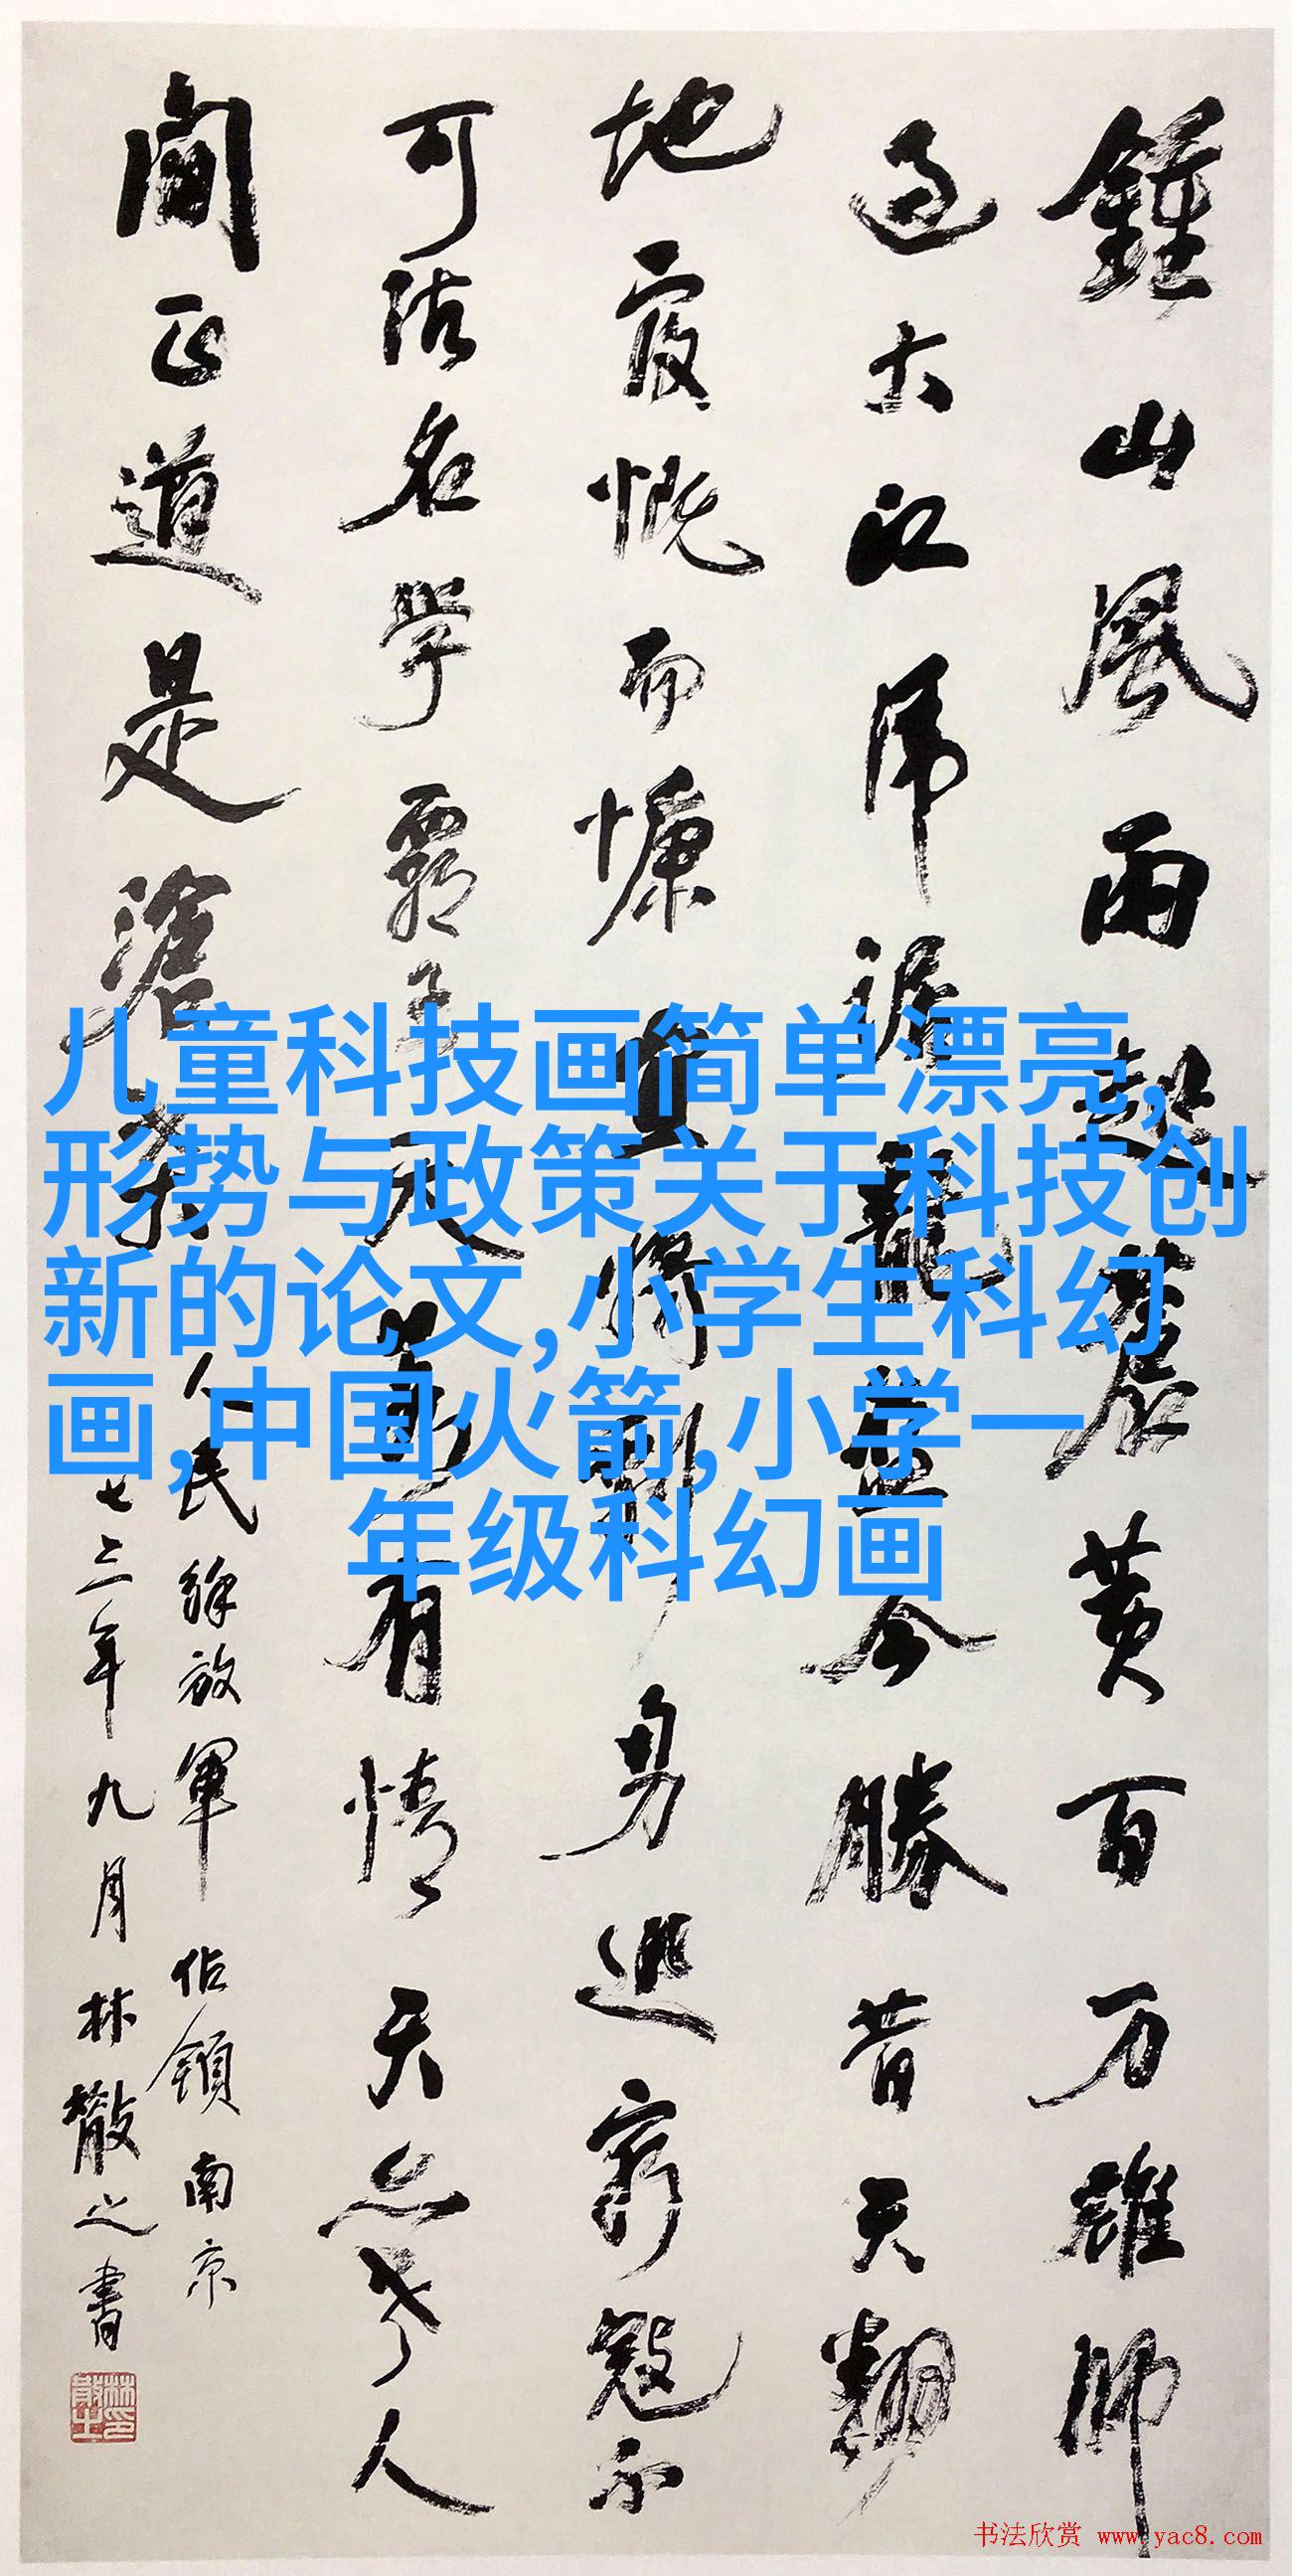 鍾山風雨起蒼黄百万雄師
過大江虎踞龍盤今勝昔天翻
地覆慨而慷宜將剩勇追窮寇不
可沽名學霸王天若有情天亦老人
間正道是滄桑
人民解放軍佔領南京
七三年九月林散之書
林散之印
儿童科技画简单漂亮,
形势与政策关于科技创
新的论文,小学生科幻
画,中国火箭,小学一
年级科幻画
书法欣赏 www.yac8.com